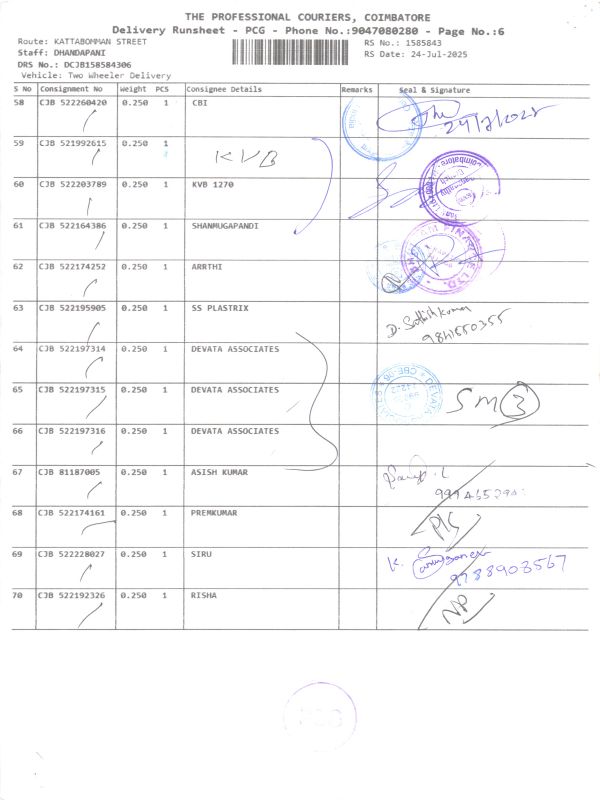 THE PROFESSIONAL COURIERS, COIMBATORE
Delivery Runsheet - PCG - Phone No.:9047080280 - Page No.:6
Route: KATTABOMMAN STREET
RS No.: 1585843
Staff: DHANDAPANI
RS Date: 24-Jul-2025
DRS No.: DCJB158584306
Vehicle: Two Wheeler Delivery
S No Consignment No Weight PCS Consignee Details Remarks Seal & Signature
58 CJB 522260420 0.250 1 CBI
59 CJB 521992615 0.250 1 KVB
60 CJB 522203789 0.250 1 KVB 1270
61 CJB 522164386 0.250 1 SHANMUGAPANDI
62 CJB 522174252 0.250 1 ARRTHI
63 CJB 522195905 0.250 1 SS PLASTRIX D. Sathishkumar
9841550355
64 CJB 522197314 0.250 1 DEVATA ASSOCIATES
65 CJB 522197315 0.250 1 DEVATA ASSOCIATES SM 3
66 CJB 522197316 0.250 1 DEVATA ASSOCIATES
67 CJB 81187005 0.250 1 ASISH KUMAR
68 CJB 522174161 0.250 1 PREMKUMAR
69 CJB 522228027 0.250 1 SIRU K.
9788903567
70 CJB 522192326 0.250 1 RISHA NP
PCG